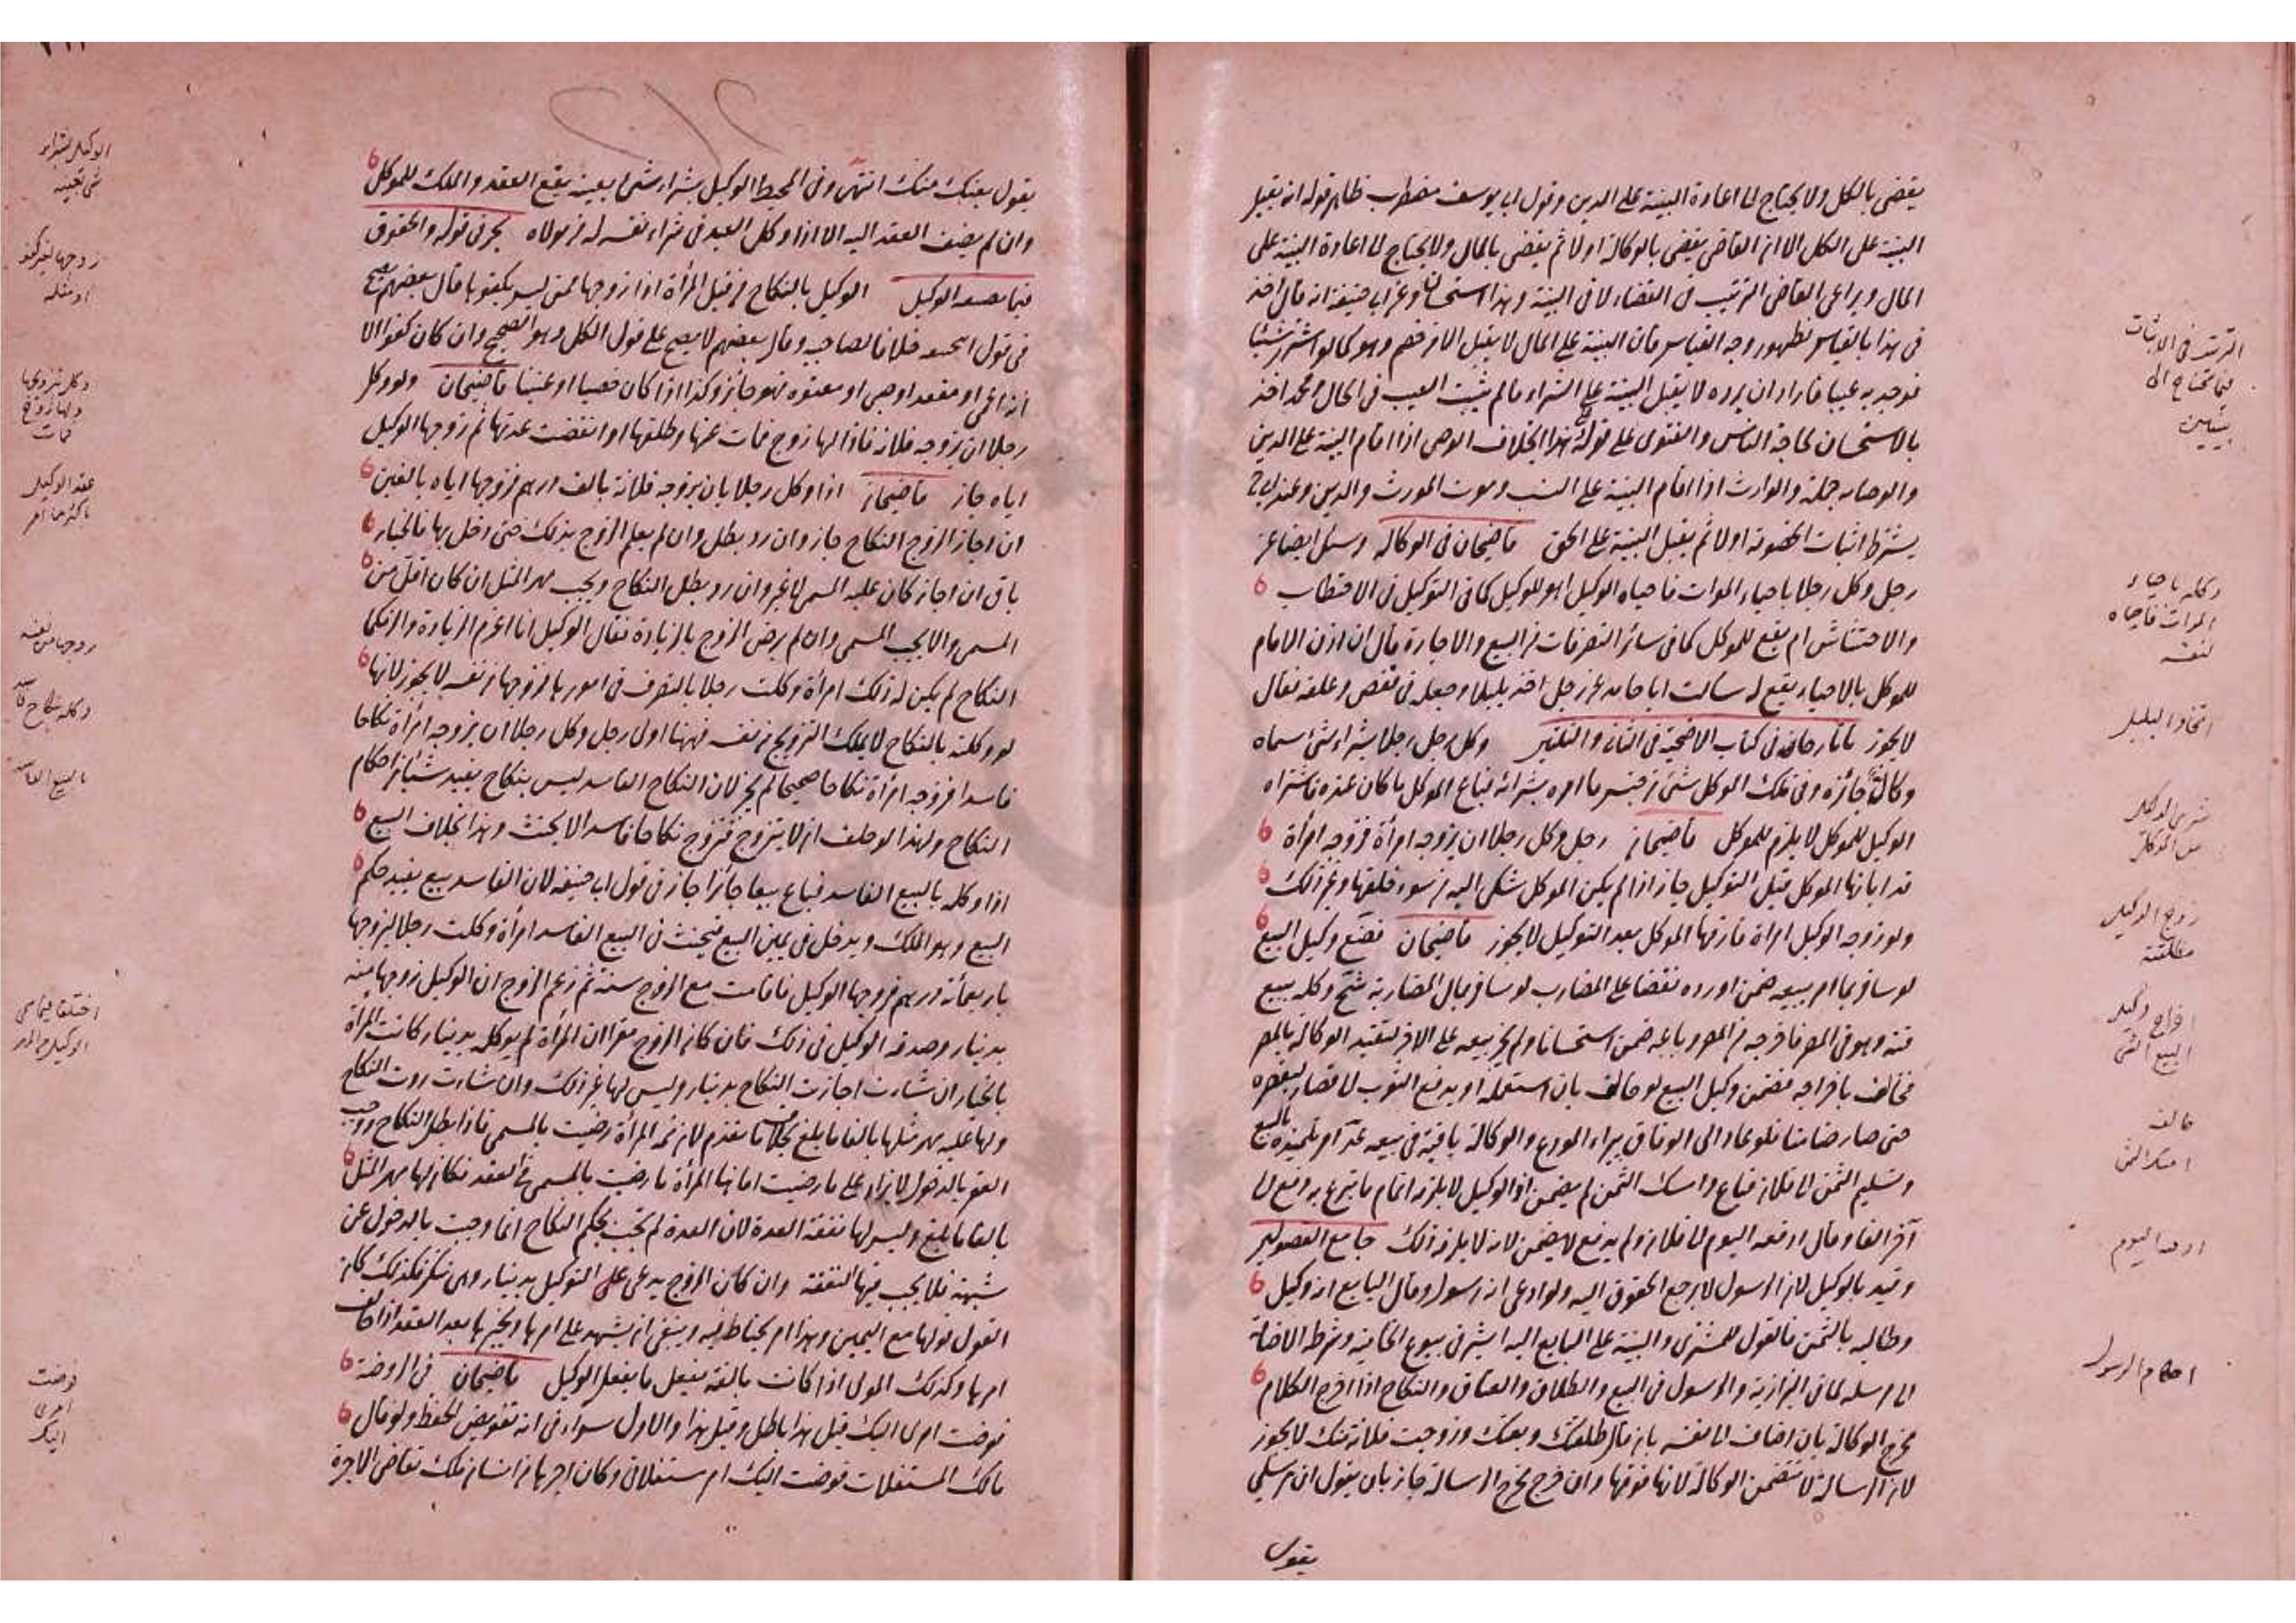 يقضى بالكل ولا يحتاج الى اعادة البينة على الدين وقول ابى يوسف مضطرب ظاهر قوله انه يقبل
البينة على الكل الا ان القاضى يقضى بالوكالة اولا ثم يقضى بالمال ولا يحتاج الى اعادة البينة على
المال ويراعى القاضى الترتيب فى القضاء لا فى البينة وهذا استحسان وعن ابى حنيفة انه قال اخذ
فى هذا بالقياس لظهور وجه القياس فان البينة على المال لا يقبل الا من خصم وهو كما لو اشترى شيئا
فوجد به عيبا فاراد ان يرده لا يقبل البينة على الشراء ما لم يثبت العيب فى الحال ومحمد اخذ
بالاستحسان لحاجة الناس والفتوى على قوله وعلى هذا الخلاف الوصى اذا اقام البينة على الدين
والوصاية جملة والوارث اذا اقام البينة على النسب وموت المورث والدين وعند ابى ح
يشترط اثبات الخصومة اولا ثم يقبل البينة على الحق قاضيخان فى الوكالة وسئل ايضا عن
رجل وكل رجلا باحياء الموات فاحياه الوكيل اهو للوكيل كما فى التوكيل فى الاحتطاب
والاحتشاش ام يقع للموكل كما فى سائر التصرفات من البيع والاجارة قال ان اذن الامام
للموكل بالاحياء يقع له سالت ابا حامد عن رجل اخذ بلبلا وجعله فى قفص وعلفه فقال
لا يجوز تاتارخان فى كتاب الاضحية فى الثانى والثلثين وكل رجل رجلا بشراء شئ سماه
وكالة جائزة وفى ملك الموكل شئ من جنس ما امره بشرائه فباع الموكل ما كان عنده فاشتراه
الوكيل للموكل لا يلزم للموكل قاضيخان رجل وكل رجلا ان يزوجه امرأة فزوجه امرأة
قد ابانها الموكل قبل التوكيل جاز اذا لم يكن الموكل شكى اليه من سوء خلقها وغير ذلك
ولو زوجه الوكيل امراة فارقها الموكل بعد التوكيل لا يجوز قاضيخان فضع وكيل البيع
لو سافر بما امر ببيعه ضمن اورده نقضا على المضارب لو سافر بمال المضاربة شخ وكله ببيع
قنه وهو فى المصر فاخرجه من المصر وباعه ضمن استحسانا ولم يجز بيعه على الامر لتقيد الوكالة بالمصر
فخالف باخراجه فضمن وكيل البيع لو خالف بان استعمله او بدفع الثوب لا قصار ليقصره
حتى صار ضامنا فلو عاد الى الوفاق يبراء المودع والوكالة باقية فى بيعه عد امر تلميذه بالبيع
وتسليم الثمن الى فلان فباع وامسك الثمن لم يضمن اذ الوكيل لا يلزمه اتمام ما تبرع به دفع الى
آخر الفا وقال ادفعه اليوم الى فلان ولم يدفع لا يضمن لانه لا يلزمه ذلك جامع الفصولين
وقيد بالوكيل لان الرسول لا يرجع الحقوق اليه ولو ادعى انه رسول وقال البايع انه وكيل
وطالبه بالثمن فالقول للمشترى والبينة على البايع اليه اشير فى بيوع الخانية وشرط الاضافة
الى مرسله كما فى البزازية والرسول فى البيع والطلاق والعتاق والنكاح اذا اخرج الكلام
مخرج الوكالة بان اضاف الى نفسه بان قال طلقتك وبعتك وزوجت فلانة منك لا يجوز
لان الرسالة لا تتضمن الوكالة لانها فوقها وان خرج مخرج الرسالة جاز بان يقول ان مرسلى
يقول
الترتيب فى الاثبات
فيما يحتاج الى
بينتين
وكله باحياء
الموات فاحياه
لنفسه
اتخاذ البلبل
شرى الوكيل
من الموكل
زوج الوكيل
مطلقته
اخراج وكيل
البيع الشئ
خالف
امسك الثمن
ادفعه اليوم
احكام الرسول
يقول بعتك منك انتهى وفى المحيط الوكيل بشراء شئ بعينه يقع العقد والملك للموكل
وان لم يضف العقد اليه الا اذا وكل العبد فى شراء نفسه له من مولاه بحر فى قوله والحقوق
فيما يضيفه الوكيل الوكيل بالنكاح من قبل المرأة اذا زوجها ممن ليس بكفو لها قال بعضهم يصح
فى قول ابى حنيفة خلافا لصاحبيه وقال بعضهم لا يصح على قول الكل وهو الصحيح وان كان كفوا الا
انه اعمى او مقعد او صبى او معتوه فهو جائز وكذا اذا كان خصيا او عنينا قاضيخان ولو وكل
رجلا ان يزوجه فلانة فاذا لها زوج فمات عنها وطلقها او انقضت عدتها ثم زوجها الوكيل
اياه جاز قاضيخان اذا وكل رجلا بان يزوجه فلانة بالف درهم فزوجها اياه بالفين
ان اجاز الزوج النكاح جاز وان رد بطل وان لم يعلم الزوج بذلك حتى دخل بها فالخيار
باق ان اجاز كان عليه المسمى لا غير وان رد بطل النكاح ويجب مهر المثل ان كان اقل من
المسمى والا يجب المسمى وان لم يرض الزوج بالزيادة فقال الوكيل انا اغرم الزيادة والزمكما
النكاح لم يكن له ذلك امرأة وكلت رجلا بالتصرف فى امورها فزوجها من نفسه لا يجوز لانها
لو وكلته بالنكاح لا يملك التزويج من نفسه فههنا اولى رجل وكل رجلا ان يزوجه امرأة نكاحا
فاسدا فزوجه امرأة نكاحا صحيحا لم يجز لان النكاح الفاسد ليس بنكاح يفيد شيئا من احكام
النكاح ولهذا لو حلف ان لا يتزوج فتزوج نكاحا فاسدا لا يحنث وهذا بخلاف البيع
اذا وكله بالبيع الفاسد فباع بيعا جائزا جاز فى قول ابى حنيفة لان الفاسد بيع يفيد حكم
البيع وهو الملك ويدخل فى يمين البيع فيحنث فى البيع الفاسد امرأة وكلت رجلا ليزوجها
باربعمائة درهم فزوجها الوكيل فاقامت مع الزوج سنة ثم زعم الزوج ان الوكيل زوجها منه
بدينار وصدقه الوكيل فى ذلك فان كان الزوج مقرا ان المرأة لم يوكله بدينار كانت المرأة
بالخيار ان شاءت اجازت النكاح بدينار وليس لها غير ذلك وان شاءت ردت النكاح
ولها عليه مهر مثلها بالغا ما بلغ بخلاف ما تقدم لان ثمه المرأة رضيت بالمسمى فاذا بطل النكاح ووجب
العقر بالدخول لا يزاد على ما رضيت اما هنا المرأة ما رضيت بالمسمى فى العقد فكان لها مهر المثل
بالغا ما بلغ وليس لها نفقة العدة لان العدة لم تجب بحكم النكاح انما وجبت بالدخول عن
شبهة فلا يجب فيها النفقة وان كان الزوج يدعى على التوكيل بدينار وهى تنكر فكذلك كان
القول قولها مع اليمين وهذا امر يحتاط فيه وينبغى ان يشهد على امرها ويخبرها بعد العقد اذا خالف
امرها وكذلك المولى اذا كانت بالغة يفعل ما يفعل الوكيل قاضيخان فى الروضة
فوضت امرى اليك قيل هذا باطل وقيل هذا والاول سواء فى انه تفويض الحفظ ولو قال
مالك المستغلات فوضت اليك امر مستغلاتى وكان اجرها من انسان ملك تقاضى الاجرة
الوكيل بشراء
شئ بعينه
زوجها لغير كفو
او مثله
وكل بتزويجها
ولها زوج
فمات
عقد الوكيل
باكثر مما امر
زوجها من نفسه
وكله بنكاح فاسد
بالبيع الفاسد
فوضت
امرى
اليك